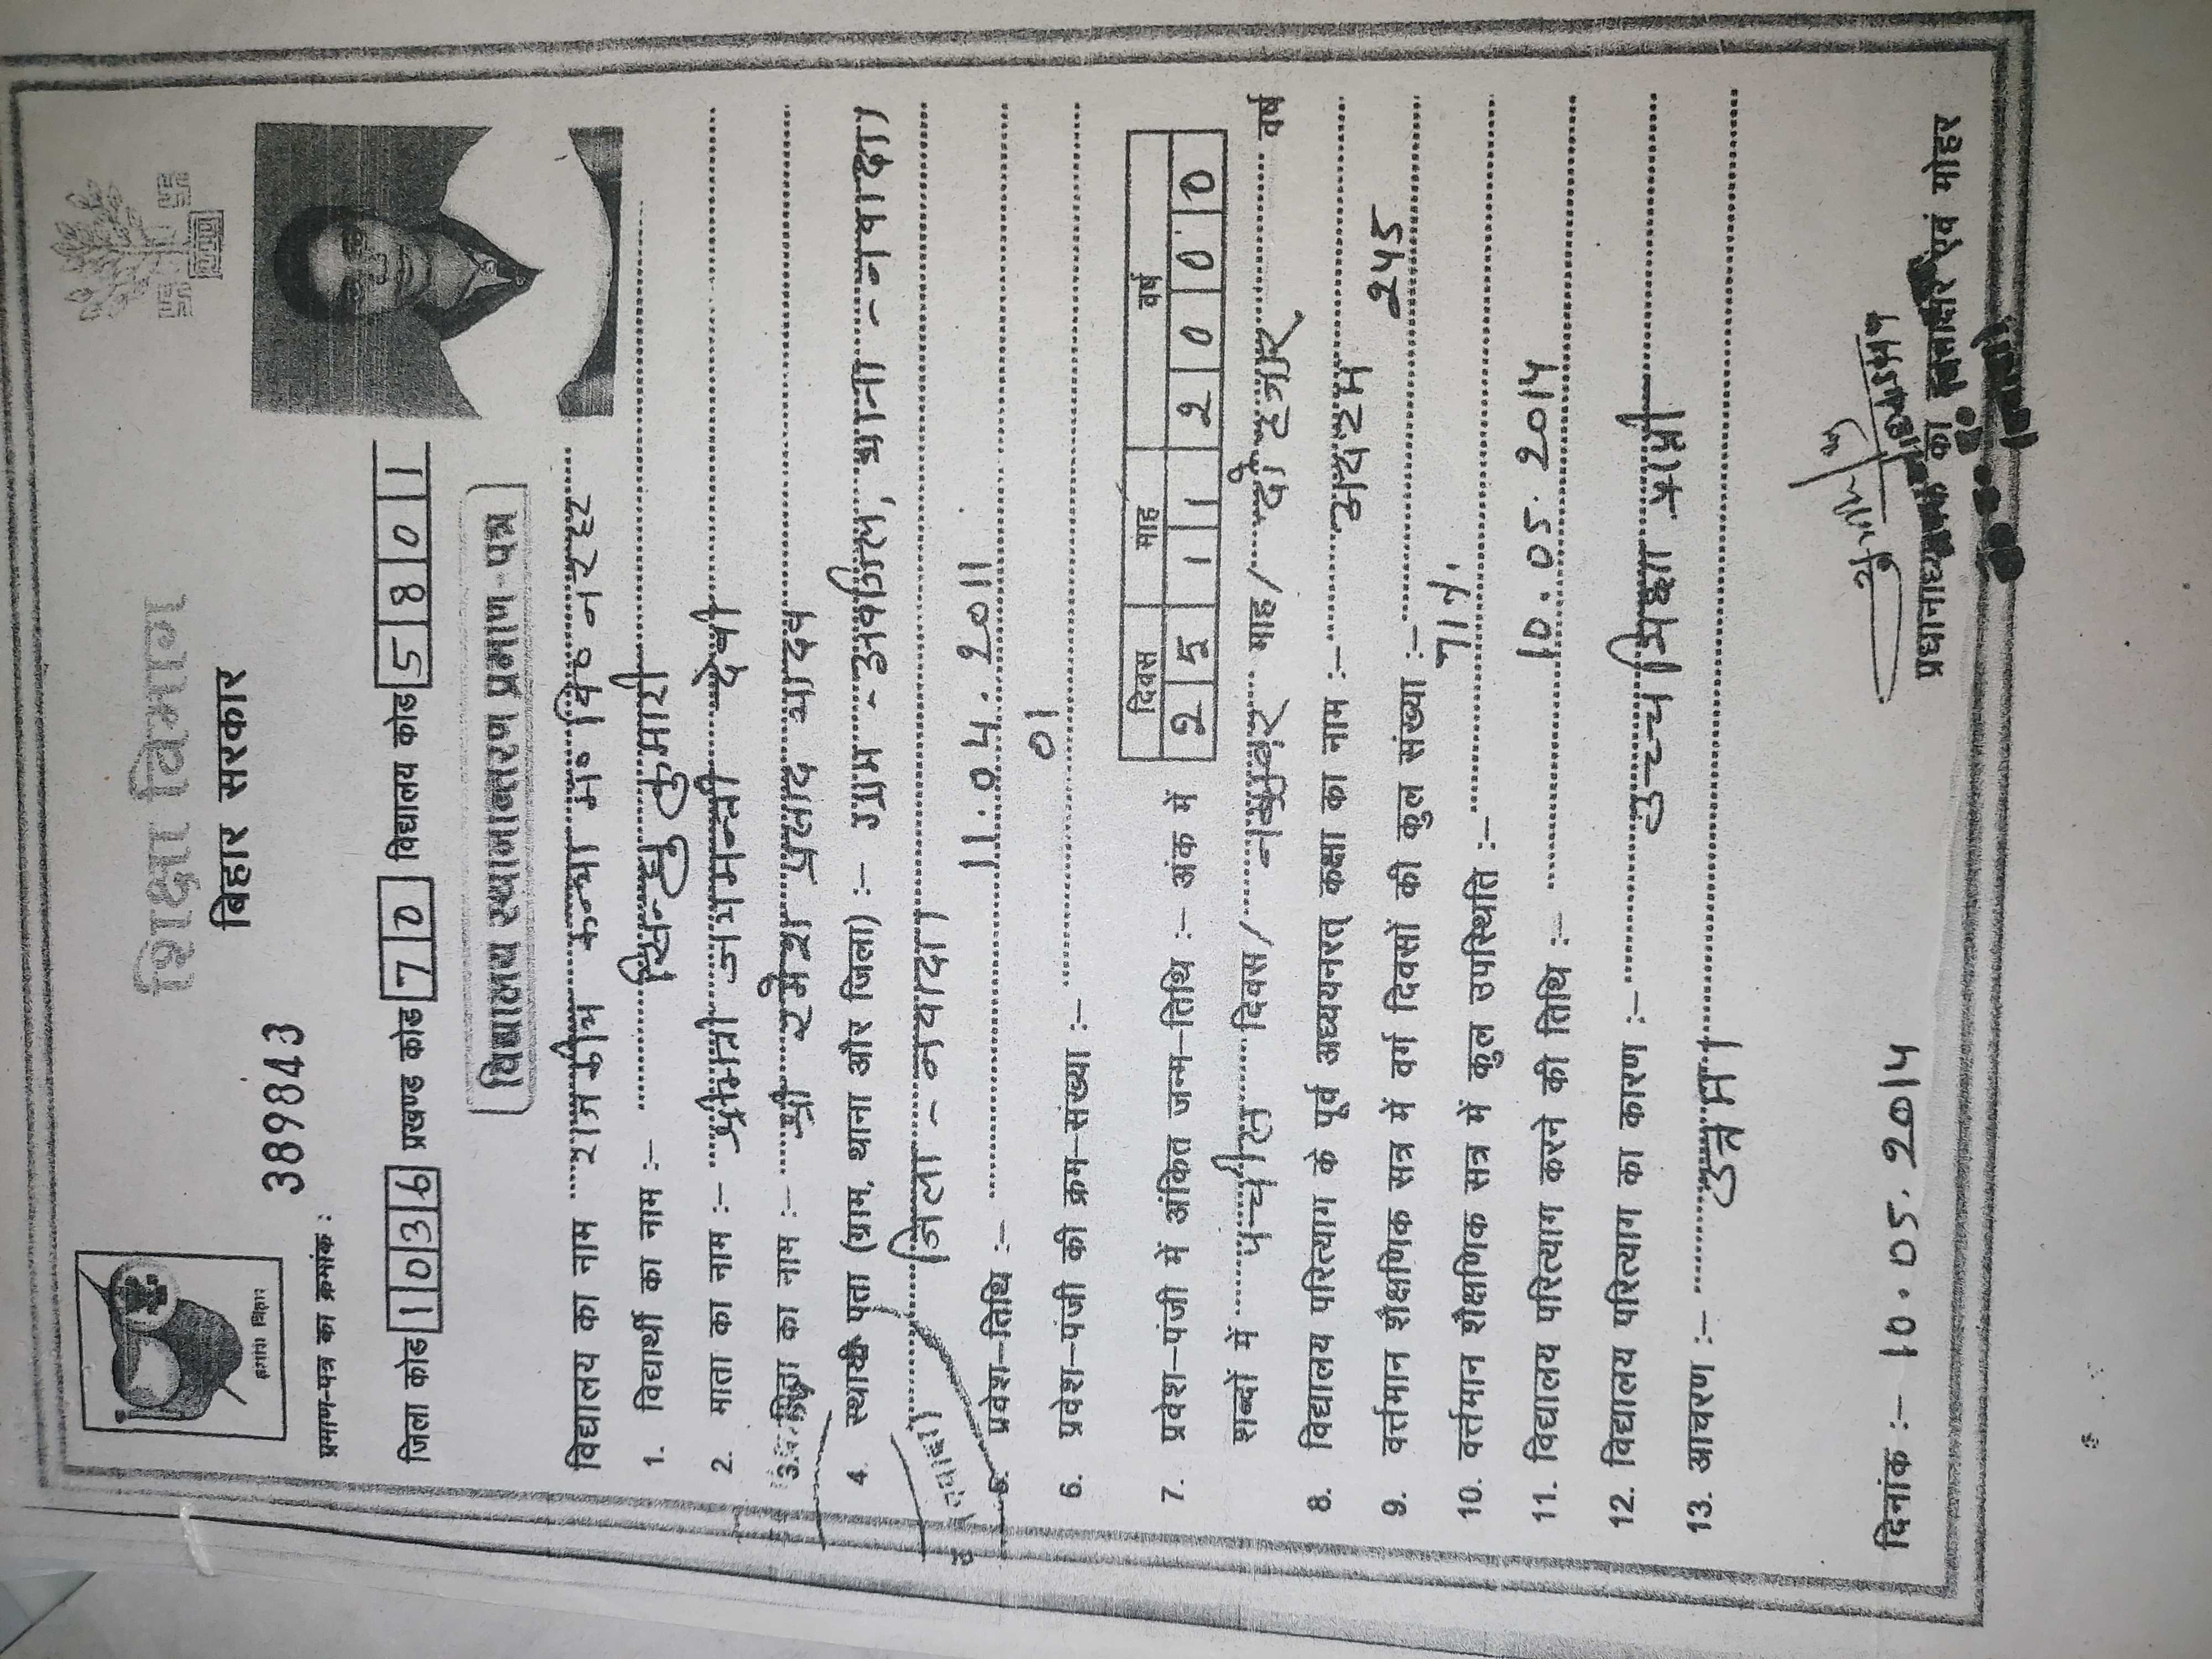 शिक्षा विभाग
बिहार सरकार
हमारा बिहार
प्रमाण-पत्र का क्रमांक : 389843
जिला कोड 1036 प्रखण्ड कोड 70 विद्यालय कोड 5801
विद्यालय स्थानान्तरण प्रमाण-पत्र
विद्यालय का नाम राजकीय कन्या म० वि० नरहट
1. विद्यार्थी का नाम :– पिन्कु कुमारी
2. माता का नाम :– श्रीमती जासमन्ती देवी
3. पिता का नाम :– श्री रमेश प्रसाद यादव
4. स्थायी पता (ग्राम, थाना और जिला) :– ग्राम - , थाना - नवादा
जिला - नवादा
5. प्रवेश–तिथि :– 11.04.2011
6. प्रवेश–पंजी की क्रम–संख्या :– 01
दिवस माह वर्ष
7. प्रवेश–पंजी में अंकित जन्म–तिथि :– अंक में 25 11 2000
शब्दों में पच्चीस दिवस / नवम्बर माह / दो हजार वर्ष
8. विद्यालय परित्याग के पूर्व अध्ययनरत् कक्षा का नाम :– अष्टम
9. वर्त्तमान शैक्षणिक सत्र में वर्ग दिवसों की कुल संख्या :– 245
10. वर्त्तमान शैक्षणिक सत्र में कुल उपस्थिति :– 71%
11. विद्यालय परित्याग करने की तिथि :– 10.05.2014
12. विद्यालय परित्याग का कारण :– उच्च शिक्षा प्राप्ति
13. आचरण :– उत्तम
दिनांक :– 10.05.2014
प्रधानाध्यापक का हस्ताक्षर एवं मोहर